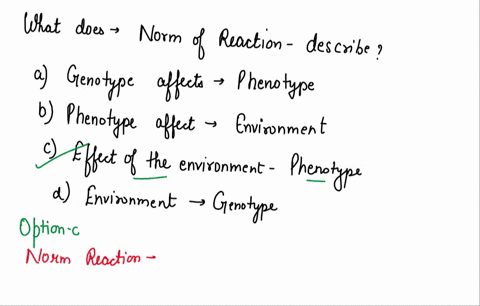 What does → Norm of Reaction - describe?
a) Genotype affects → Phenotype
b) Phenotype affect → Environment
c) Effect of the environment - Phenotype
d) Environment → Genotype
Option-c
Norm Reaction -